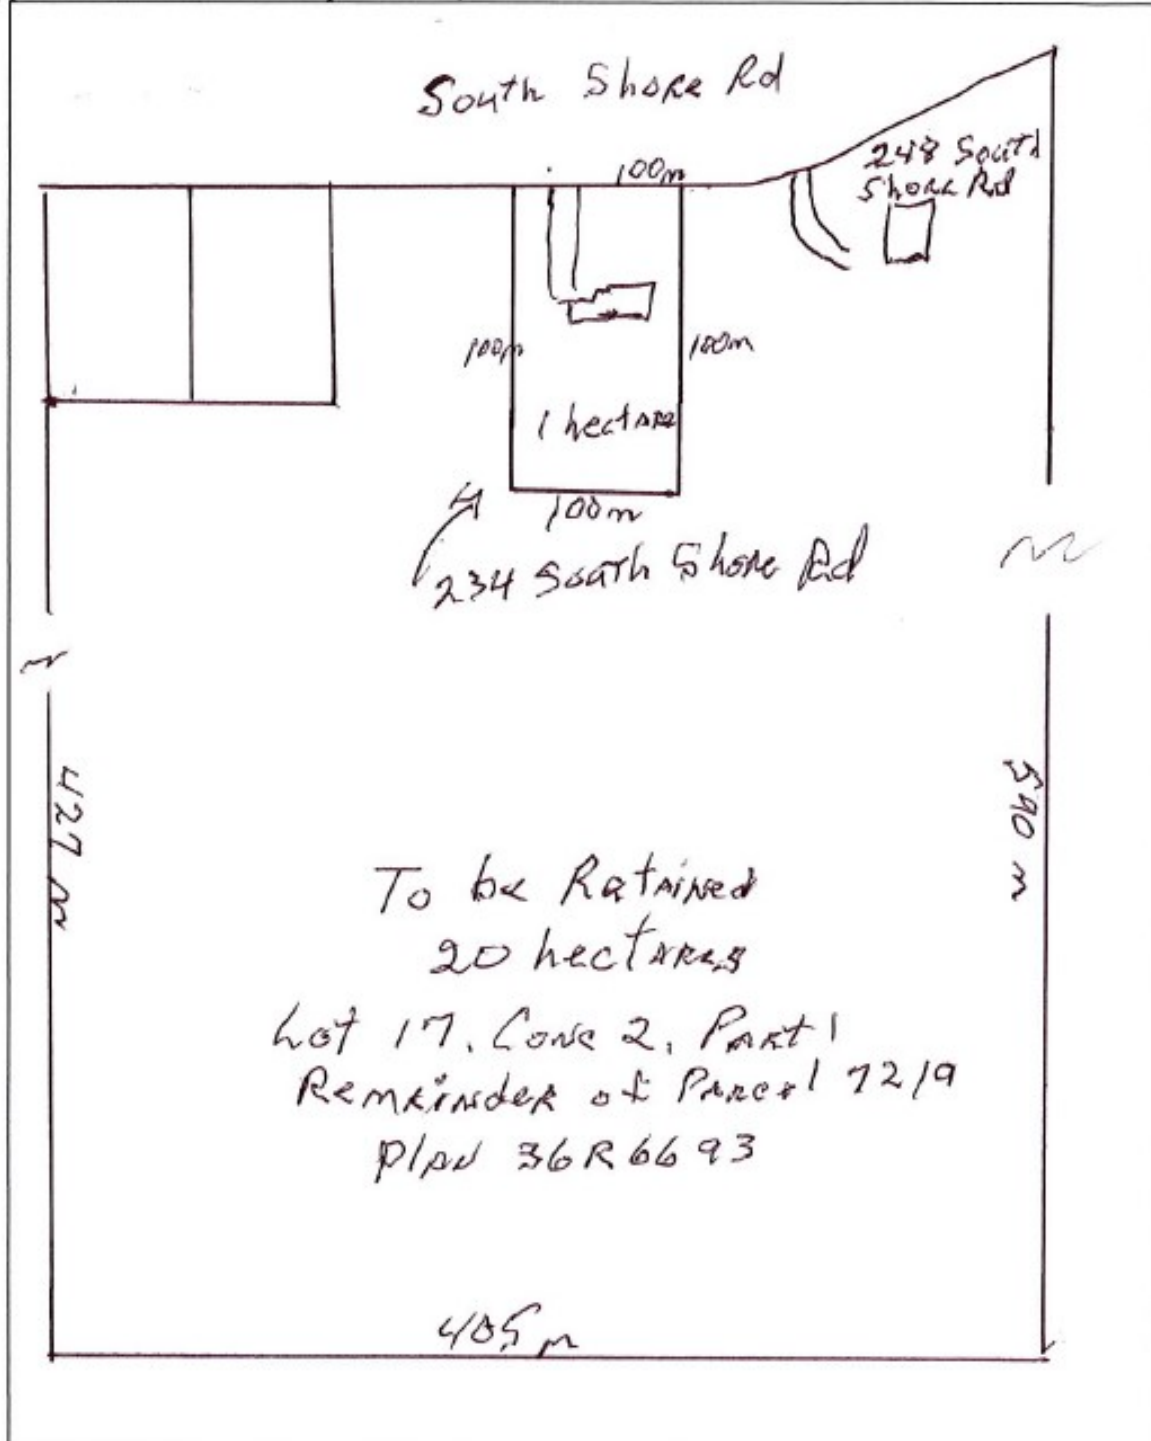 South Shore Rd
100m
248 South
Shore Rd
100m
100m
1 hectare
100m
234 South Shore Rd
427 m
590 m
To be Retained
20 hectares
Lot 17, Conc 2, Part 1
Remainder of Parcel 7219
Plan 36R6693
405 m